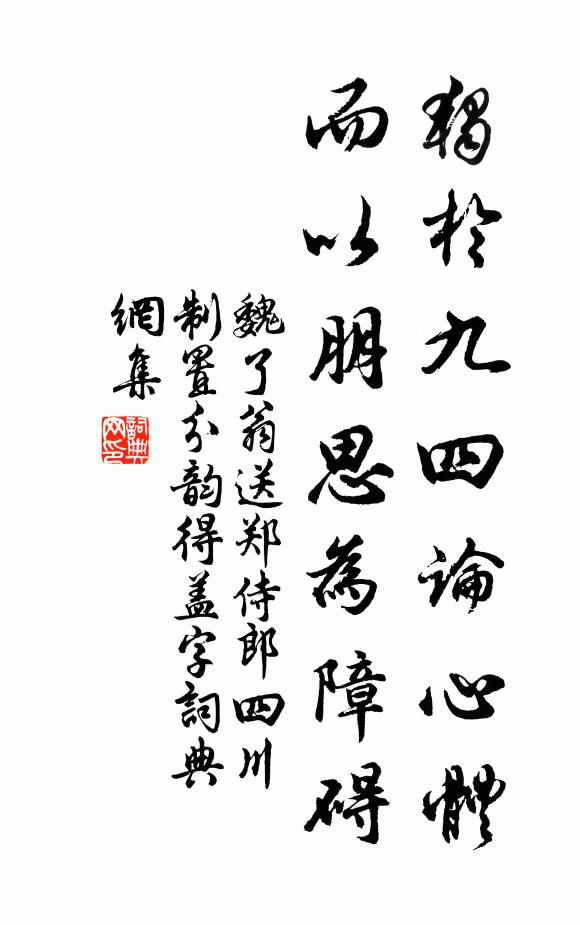 獨於九四論心體
而以朋思為障碍
魏了翁送郑侍郎四川
制置分韵得盖字詞典
網集
詞典
网印